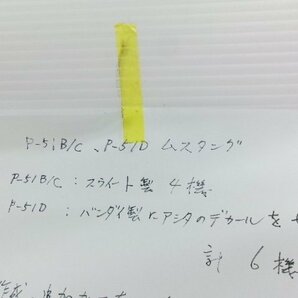 P-51B/C、P-51D ムスタング
P-51B/C : スウィート製 4機
P-51D : バンダイ製 アシタのデカールを
計 6機
作成